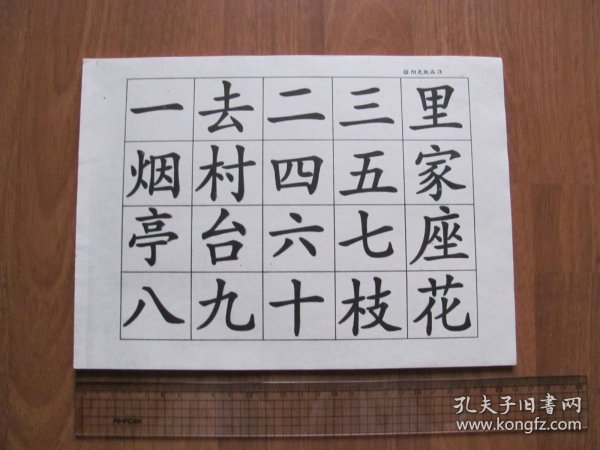 阳光纸品
一去二三里
烟村四五家
亭台六七座
八九十枝花
孔夫子旧書网
www.kongfz.com